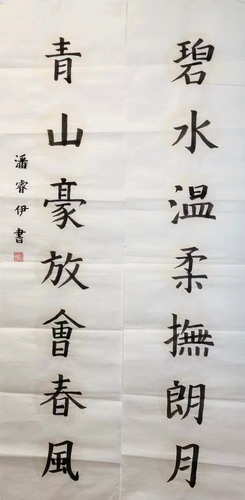 碧水温柔撫朗月
青山豪放會春風
潘睿伊書